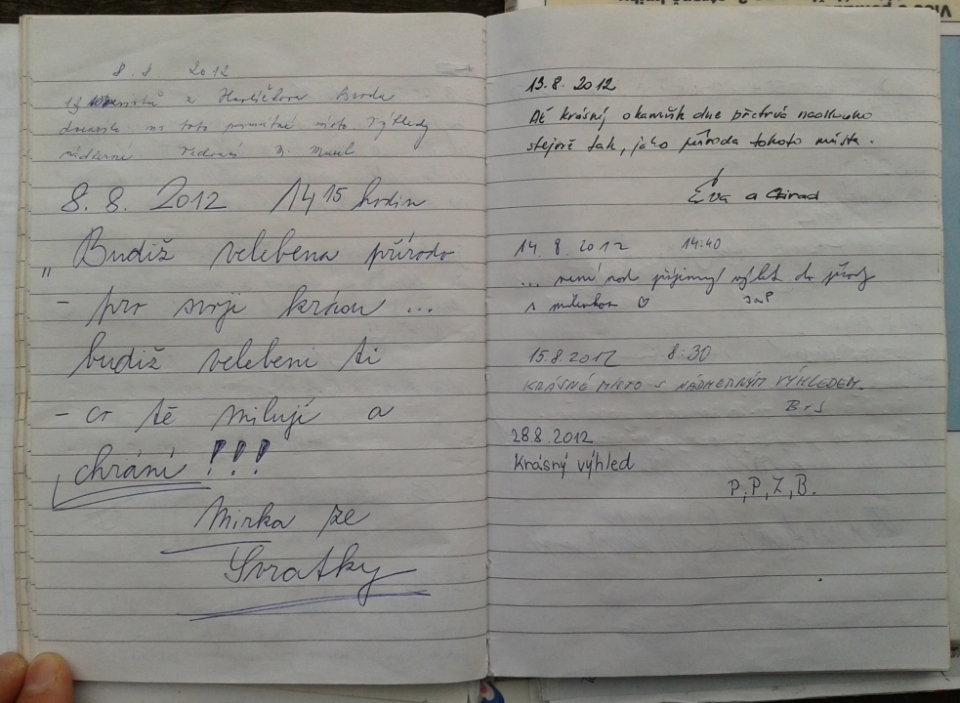 8. 8. 2012
13 z Havlíčkova Brodu
na toto památné místo. Výhledy
nádherné
8. 8. 2012 14 15 hodin
„Budiž velebena přírodo
- pro svoji krásu ...
budiž velebeni ti
- co tě milují a
chrání !!!
Mirka ze
Svratky
13. 8. 2012
Ať krásný okamžik dne přetrvá naokolo
stejně tak, jako příroda tohoto místa.
Éva a
14. 8. 2012 14:40
... není nad příjemný výlet do přírody
s milenkou ♡ JaP
15.8.2012 8:30
KRÁSNÉ MÍSTO S NÁDHERNÝM VÝHLEDEM.
28.8.2012
Krásný výhled
P, P, Z, B.